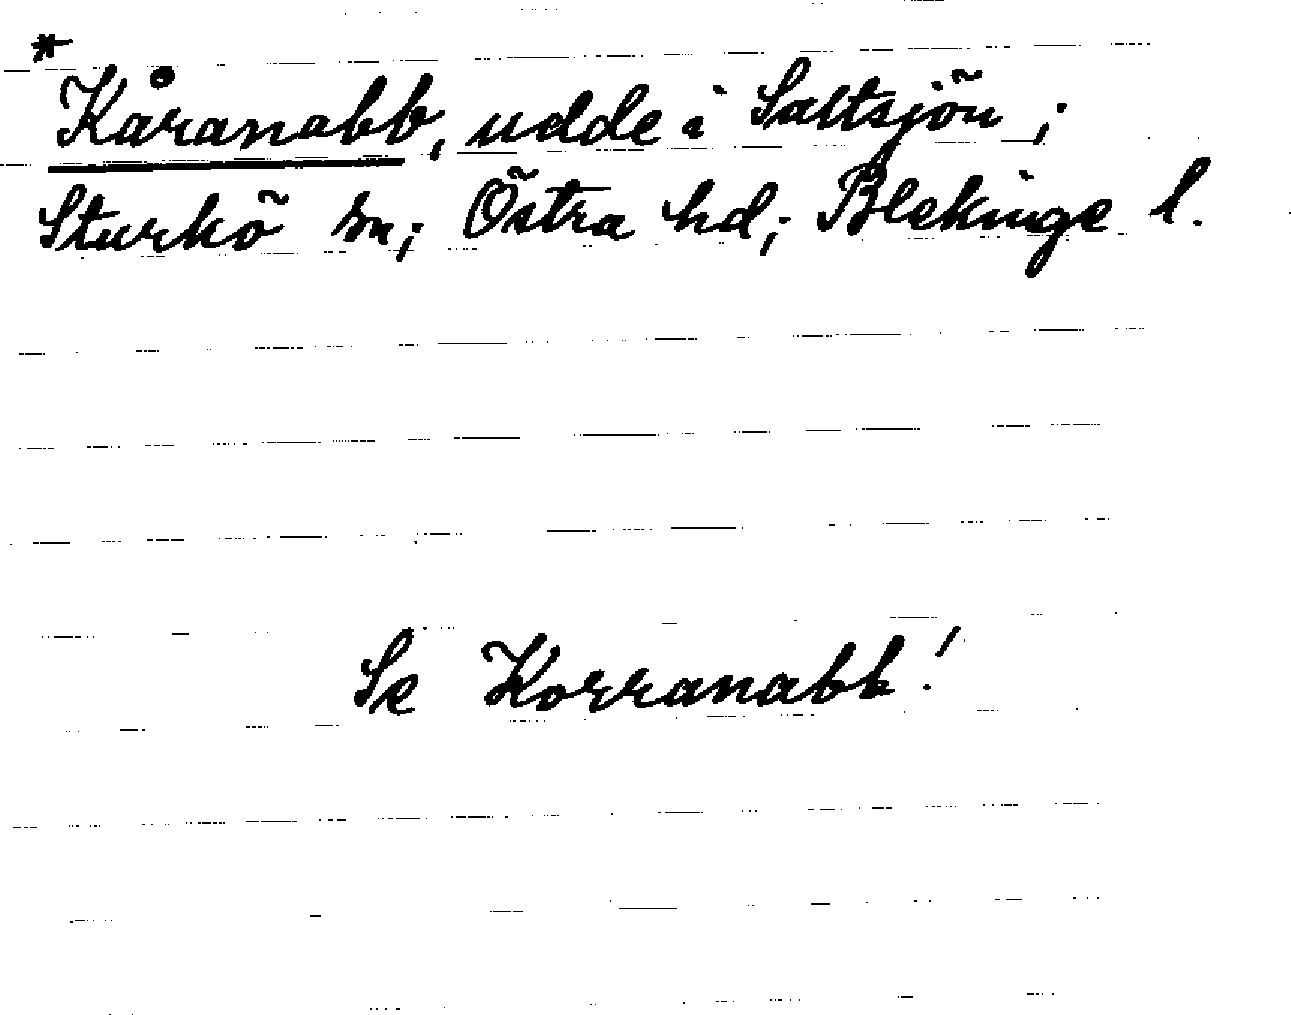 *
Kåranabb, udde i Saltsjön;
Sturkö sn; Östra hd; Blekinge l.
Se Korranabb!